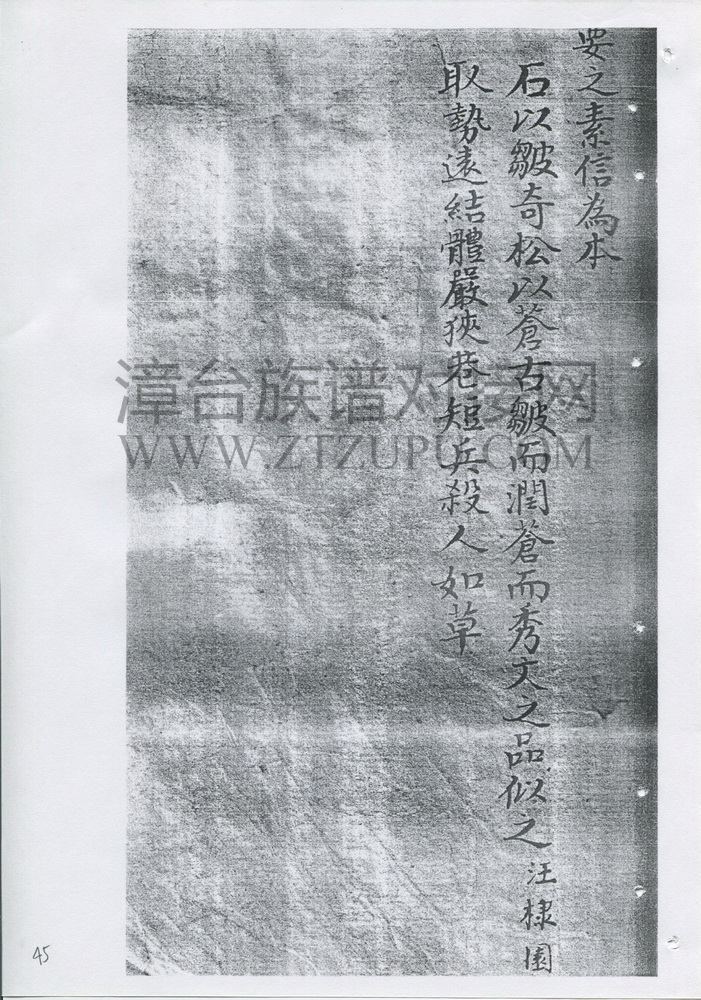 要之素信為本
石以皺奇松以蒼古皺而潤蒼而秀文之品似之 汪棣園
取勢遠結體嚴狹巷短兵殺人如草
漳台族谱对接网
WWW.ZTZUPU.COM
45